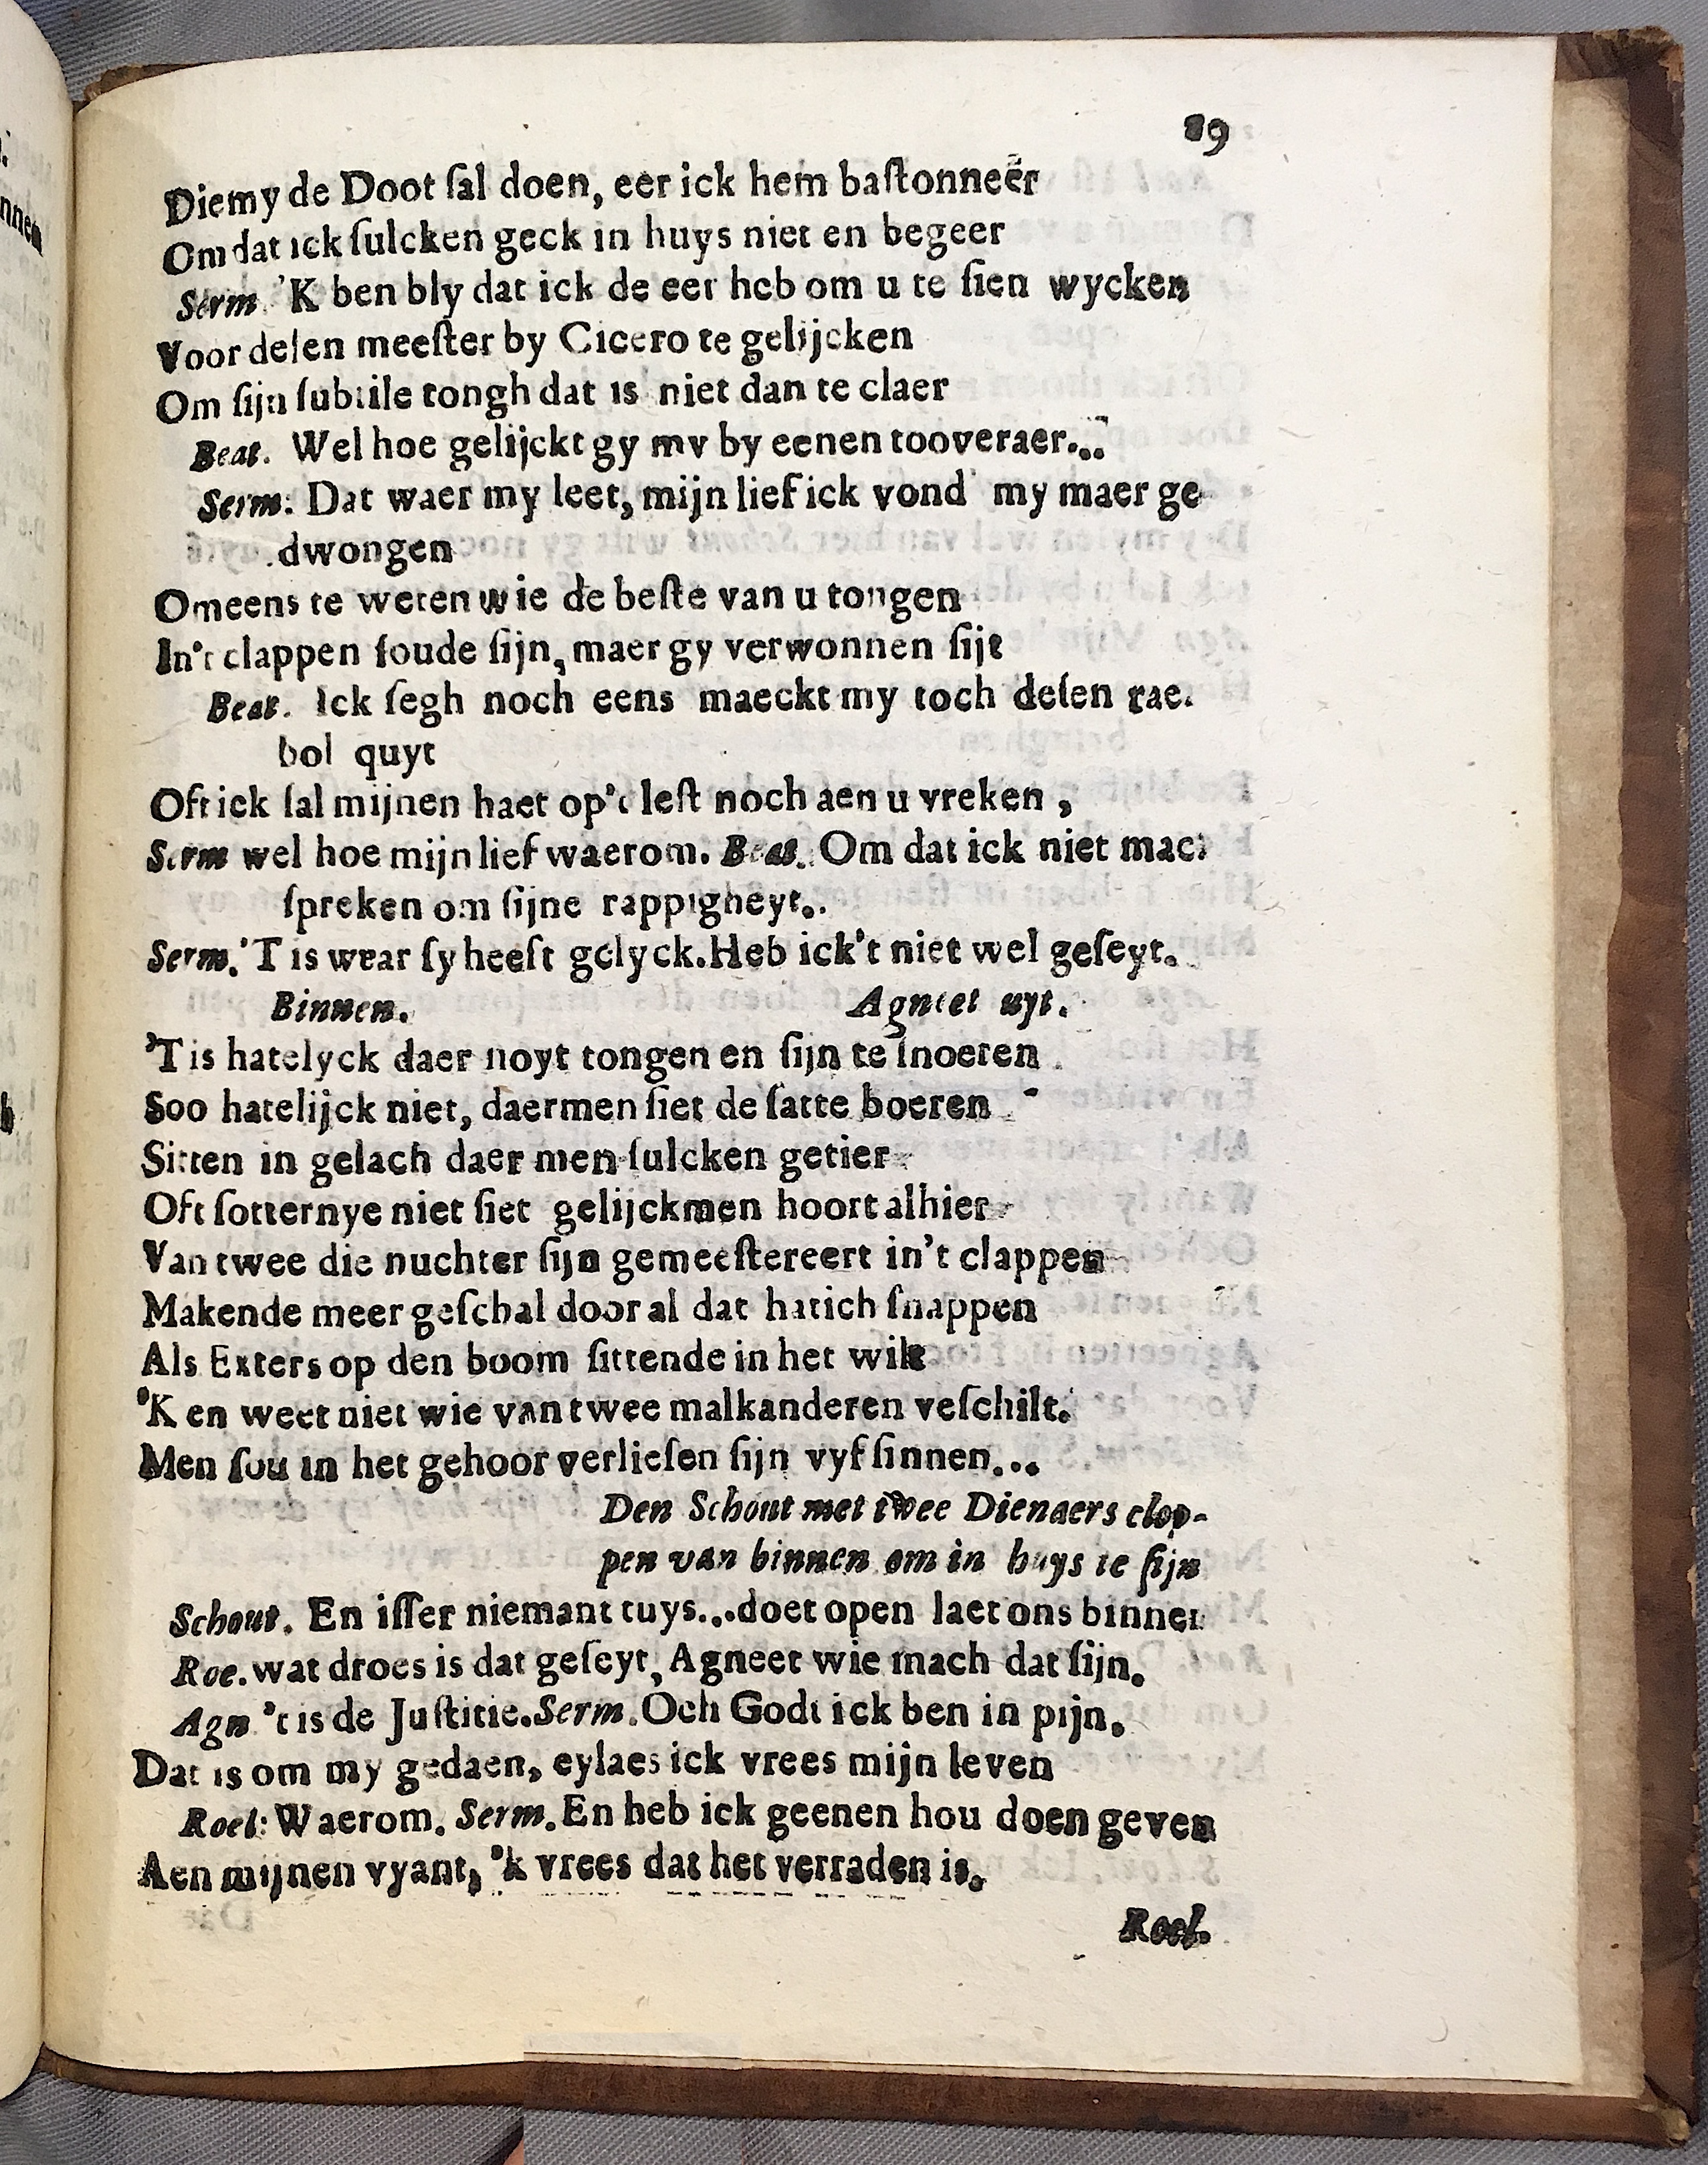 89
Diemy de Doot ſal doen, eer ick hem baſtonneer
Om dat ick ſulcken geck in huys niet en begeer
Serm. 'K ben bly dat ick de eer heb om u te ſien wycken
Voor deſen meeſter by Cicero te gelijcken
Om ſijn ſubtile tongh dat is niet dan te claer
Beat. Wel hoe gelijckt gy my by eenen tooveraer...
Serm: Dat waer my leet, mijn lief ick vond my maer ge
dwongen
Omeens te weten wie de beſte van u tongen
In't clappen ſoude ſijn, maer gy verwonnen ſijt
Beat. Ick ſegh noch eens maeckt my toch deſen rae.
bol quyt
Oft ick ſal mijnen haet op't leſt noch aen u vreken,
Serm wel hoe mijn lief waerom. Beat. Om dat ick niet mach
ſpreken om ſijne rappigheyt..
Serm. 'T is waar ſy heeft gelyck. Heb ick't niet wel geſeyt.
Binnen. Agneet uyt.
'T is hatelyck daer noyt tongen en ſijn te ſnoeren
Soo hatelijck niet, daermen ſiet de ſatte boeren
Sitten in gelach daer men ſulcken getier
Oft ſotternye niet ſiet gelijckmen hoort alhier
Van twee die nuchter ſijn gemeeſtereert in't clappen
Makende meer geſchal door al dat hatich ſnappen
Als Exters op den boom ſittende in het wilt
'K en weet niet wie van twee malkanderen veſchilt.
Men ſou in het gehoor verlieſen ſijn vyf ſinnen...
Den Schout met twee Dienaers clop-
pen van binnen om in huys te ſijn
Schout. En iſſer niemant tuys...doet open laet ons binnen
Roe. wat droes is dat geſeyt, Agneet wie mach dat ſijn.
Agn 't is de Juſtitie. Serm. Och Godt ick ben in pijn.
Dat is om my gedaen, eylaes ick vrees mijn leven
Roel: Waerom. Serm. En heb ick geenen hou doen geven
Aen mijnen vyant, 'k vrees dat het verraden is.
Roel.